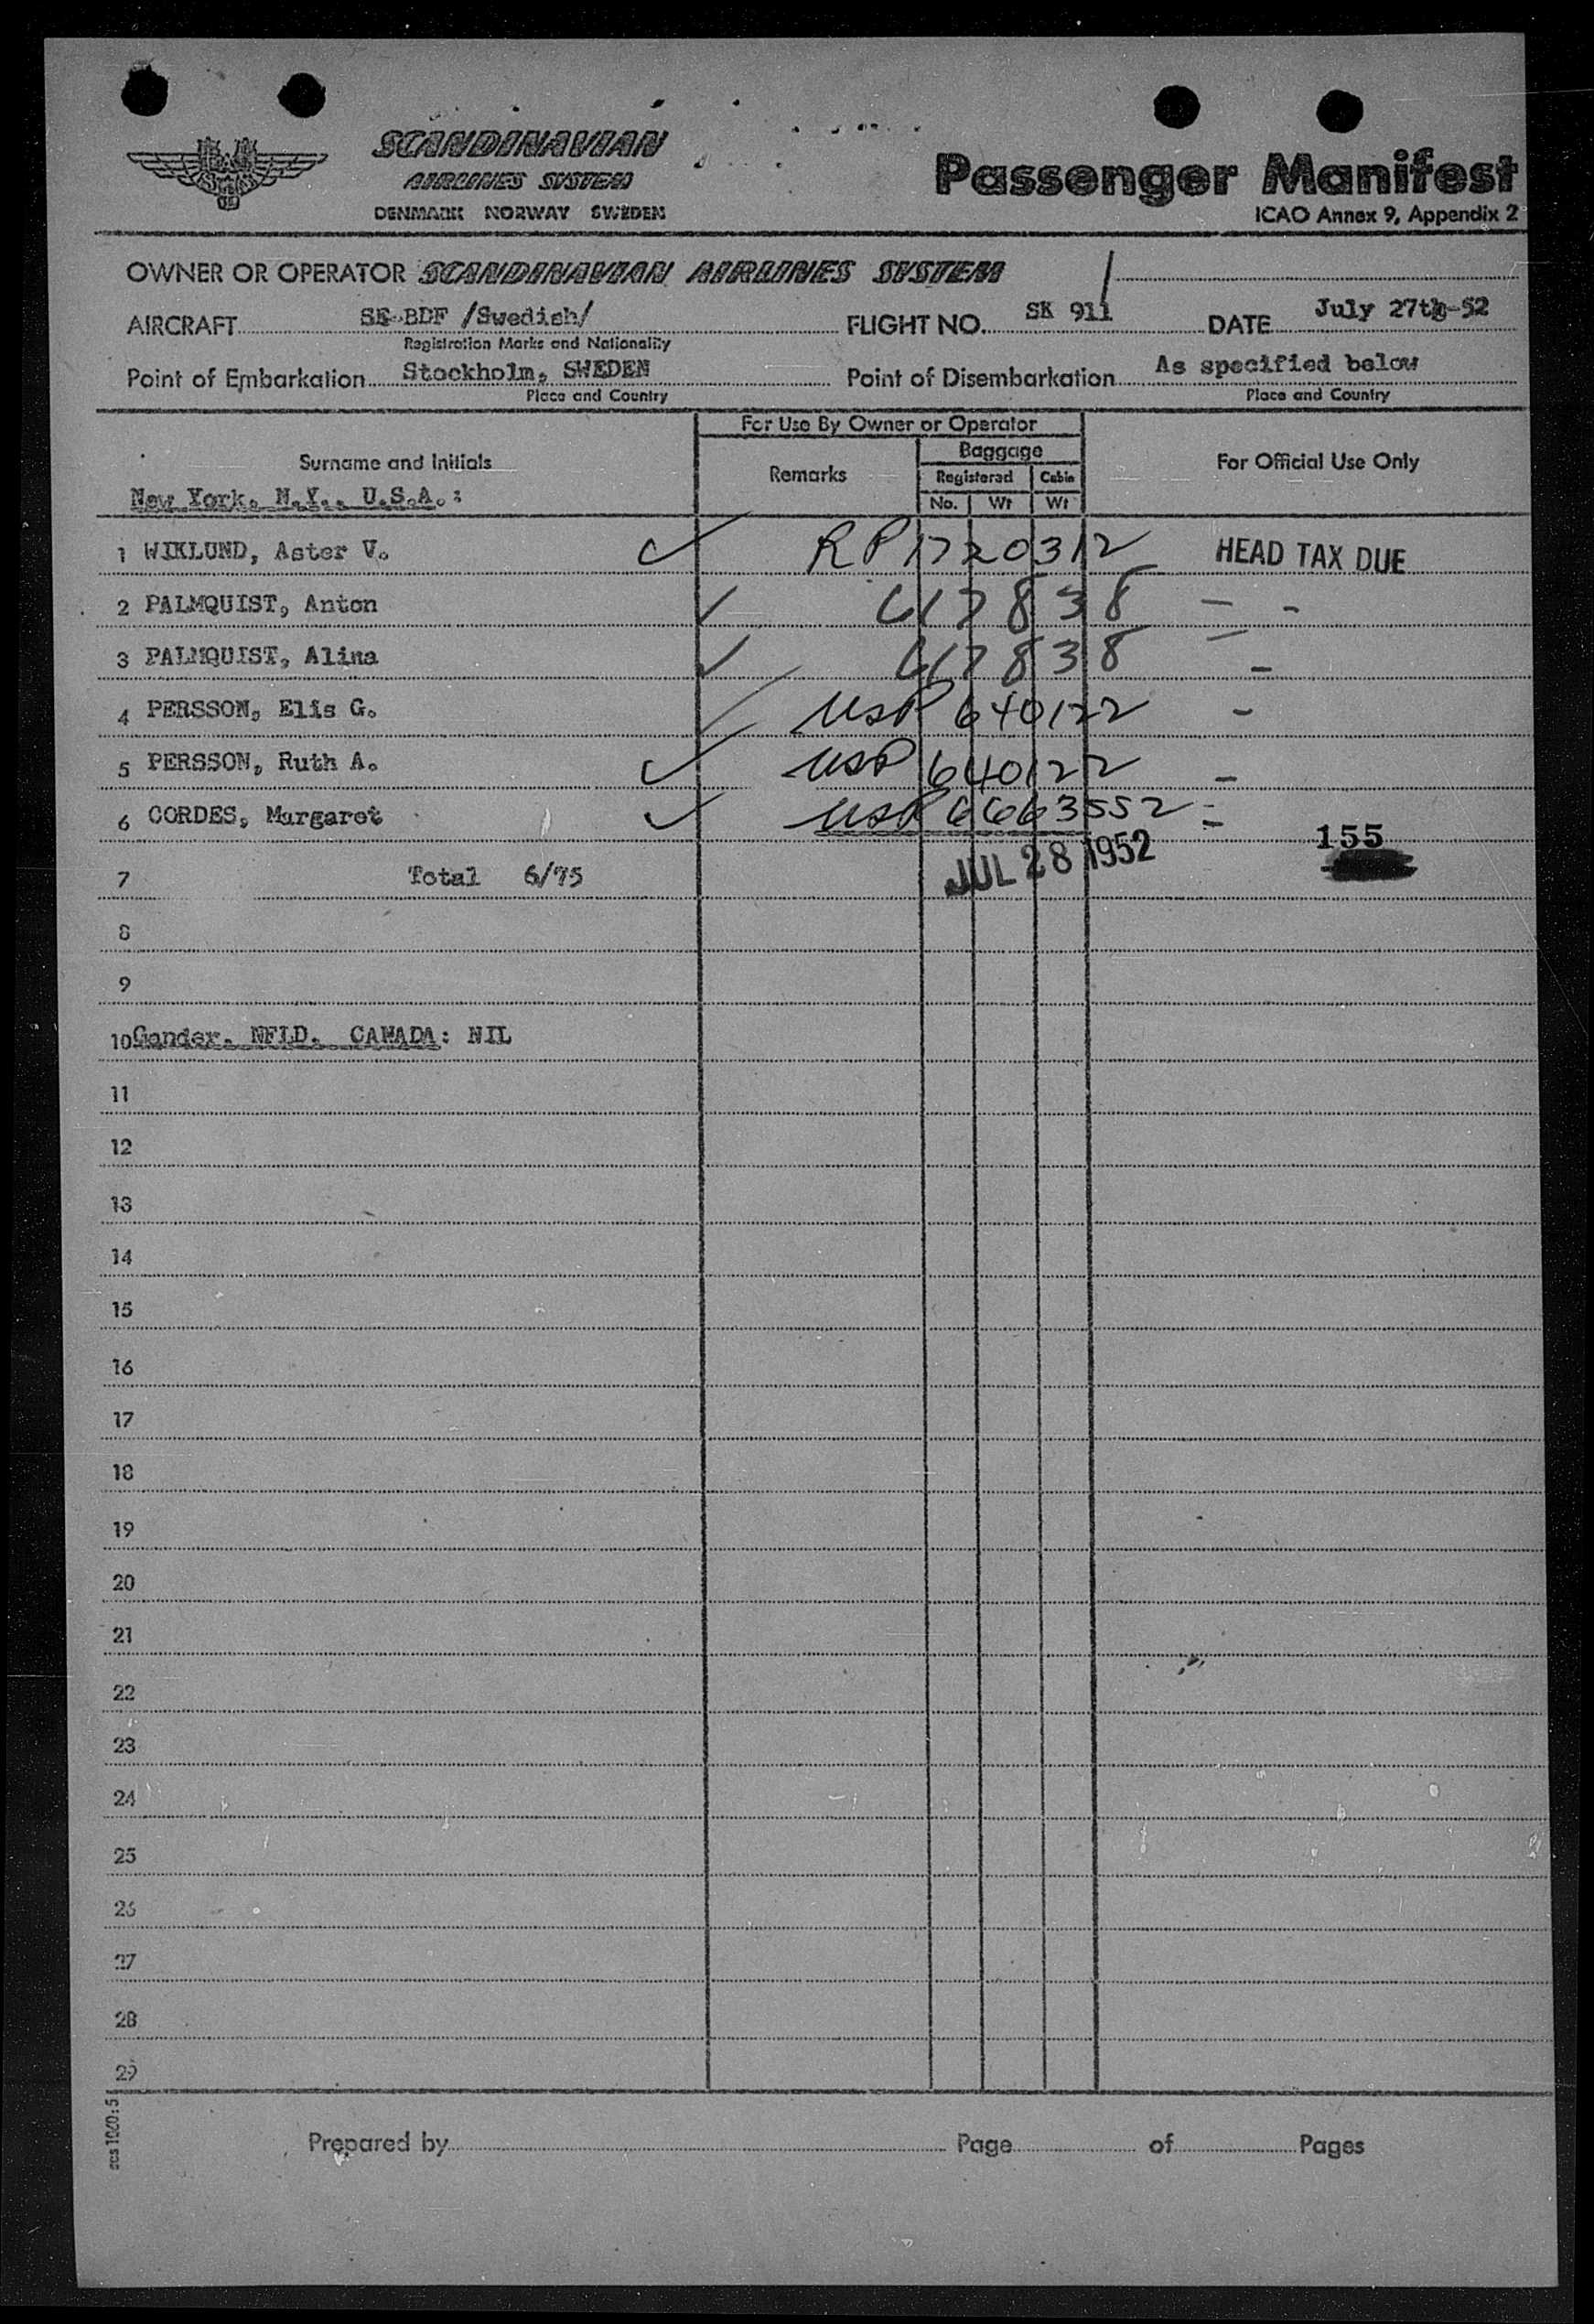 SCANDINAVIAN
AIRLINES SYSTEM
DENMARK NORWAY SWEDEN
Passenger Manifest
ICAO Annex 9, Appendix 2
OWNER OR OPERATOR SCANDINAVIAN AIRLINES SYSTEM
AIRCRAFT SE-BDF /Swedish/ FLIGHT NO. SK 911 / DATE July 27th-52
Registration Marks and Nationality
Point of Embarkation Stockholm, SWEDEN Point of Disembarkation As specified below
Place and Country Place and Country
For Use By Owner or Operator
Surname and Initials Remarks Baggage For Official Use Only
Registered Cabin
No. Wt Wt
New York, N.Y., U.S.A.:
1 WIKLUND, Aster V. ✓ RP 1720312 HEAD TAX DUE
2 PALMQUIST, Anton ✓ 617838 – -
3 PALMQUIST, Alina ✓ 617838 – -
4 PERSSON, Elis G. ✓ USP 640122 -
5 PERSSON, Ruth A. ✓ USP 640122 -
6 CORDES, Margaret ✓ USP 6663552 =
155
7 Total 6/75 JUL 28 1952
8
9
10 Gander, NFLD, CANADA: NIL
11
12
13
14
15
16
17
18
19
20
21
22
23
24
25
26
27
28
29
Prepared by Page of Pages